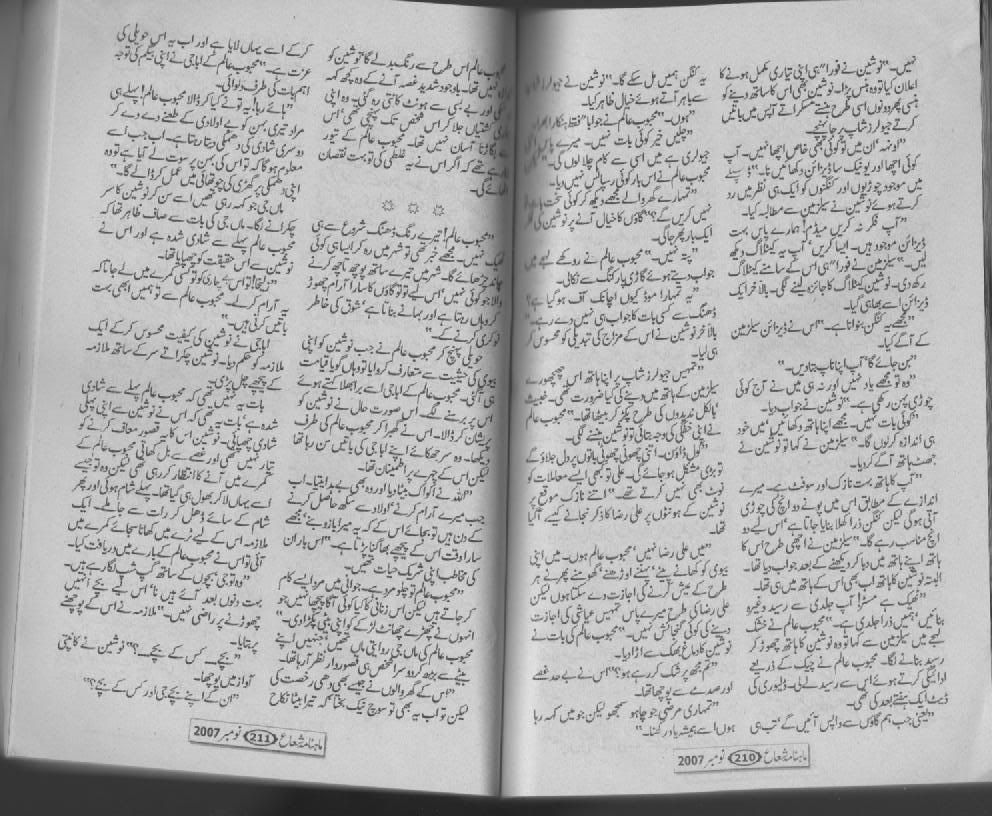 نہیں۔" نوشین نے فورا" ہی اپنی تیاری مکمل ہونے کا
اعلان کیا تو وہ ہنس پڑا۔ نوشین بھی اس کا ساتھ دینے کو
ہنسی پھر دونوں اسی طرح ہنستے مسکراتے آپس میں باتیں
کرتے جیولرز شاپ پر جا پہنچے۔
"اونہہ! ان میں تو کوئی بھی خاص اچھا نہیں۔ آپ
کوئی اچھا اور یونیک سا ڈیزائن دکھائیں نا۔" ڈسپلے
میں موجود چوڑیوں اور کنگنوں کو ایک ہی نظر میں رد
کرتے ہوئے نوشین نے سیلزمین سے مطالبہ کیا۔
"آپ فکر نہ کریں میڈم! ہمارے پاس بہت
ڈیزائن موجود ہیں۔ ایسا کریں' آپ یہ کیٹلاگ دیکھ
لیں۔" سیلزمین نے فورا" ہی اس کے سامنے کیٹلاگ
رکھ دی۔ نوشین کیٹلاگ کا جائزہ لینے لگی۔ بالآخر ایک
ڈیزائن اسے بھا ہی گیا۔
"مجھے یہ کنگن بنوانا ہے۔" اس نے ڈیزائن سیلزمین
کے آگے کیا۔
"بن جائے گا' آپ اپنا ناپ بتا دیں۔"
"وہ تو مجھے یاد نہیں اور نہ ہی میں نے آج کوئی
چوڑی پہن رکھی ہے۔" نوشین نے جواب دیا۔
"کوئی بات نہیں۔ مجھے اپنا ہاتھ دکھائیں' میں خود
ہی اندازہ کر لوں گا۔" سیلزمین نے کہا تو نوشین نے
جھٹ ہاتھ آگے کر دیا۔
"آپ کا ہاتھ بہت نازک اور سوفٹ ہے۔ میرے
اندازے کے مطابق اس میں پونے دو انچ کی چوڑی
آتی ہوگی لیکن کنگن ذرا کھلا بنایا جاتا ہے' اس لیے دو
انچ مناسب رہے گا۔" سیلزمین نے اچھی طرح اس کا
ہاتھ اپنے ہاتھ میں دبا کر دیکھنے کے بعد جواب دیا تھا۔
البتہ نوشین کا ہاتھ اب بھی اس کے ہاتھ میں ہی تھا۔
"ٹھیک ہے مسٹر! آپ جلدی سے رسید وغیرہ
بنائیں' ہمیں ذرا جلدی ہے۔" محبوب عالم نے خشک
لہجے میں سیلزمین سے کہا تو وہ نوشین کا ہاتھ چھوڑ کر
رسید بنانے لگا۔ محبوب عالم نے چیک کے ذریعے
ادائیگی کرتے ہوئے اس سے رسید لے لی۔ ڈلیوری کی
ڈیٹ ایک ہفتے بعد کی تھی۔
"یعنی جب ہم گاؤں سے واپس آئیں گے' تب ہی
یہ کنگن ہمیں مل سکے گا۔" نوشین نے جیولرز شاپ
سے باہر آتے ہوئے خیال ظاہر کیا۔
"ہوں۔" محبوب عالم نے جوابا" فقط ہنکارا بھرا۔
"چلیں خیر کوئی بات نہیں۔ میرے پاس
جیولری ہے میں اسی سے کام چلا لوں گی۔"
محبوب عالم نے اس بار کوئی رسپانس نہیں دیا۔
"تمہارے گھر والے مجھے دیکھ کر کوئی سخت
نہیں کریں گے؟" گاؤں کا خیال آنے پر نوشین کی فکر
ایک بار پھر جاگی۔
"پتہ نہیں۔" محبوب عالم نے روکھے لہجے میں
جواب دیتے ہوئے گاڑی پارکنگ سے نکالی۔
"یہ تمہارا موڈ کیوں اچانک آف ہو گیا ہے؟
ڈھنگ سے کسی بات کا جواب ہی نہیں دے رہے۔"
بالآخر نوشین نے اس کے مزاج کی تبدیلی کو محسوس کر
ہی لیا۔
"تمہیں جیولرز شاپ پر اپنا ہاتھ اس چھچھورے
سیلزمین کے ہاتھ میں دینے کی کیا ضرورت تھی۔ خبیث
بالکل ندیدوں کی طرح پکڑ کر بیٹھا تھا۔" محبوب عالم
نے اپنی خفگی کی وجہ بتائی تو نوشین ہنسنے لگی۔
"کول ڈاؤن۔ اتنی چھوٹی چھوٹی باتوں پر دل جلاؤ گے
تو بڑی مشکل ہو جائے گی۔ علی تو بھی ایسے معاملات کو
نوٹ بھی نہیں کرتے تھے۔" اتنے نازک موقع پر
نوشین کے ہونٹوں پر علی رضا کا ذکر نجانے کیسے آ گیا
تھا۔
"میں علی رضا نہیں' محبوب عالم ہوں۔ میں اپنی
بیوی کو کھانے پینے' پہننے اوڑھنے' گھومنے پھرنے ہر
طرح کے عیش کرنے کی اجازت دے سکتا ہوں لیکن
علی رضا کی طرح میرے پاس تمہیں عیاشی کی اجازت
دینے کی کوئی گنجائش نہیں۔" محبوب عالم کی بات نے
نوشین کا دماغ بھک سے اڑا دیا۔
"تم مجھ پر شک کر رہے ہو؟" اس نے بے حد غصے
اور صدمے سے پوچھا تھا۔
"تمہاری مرضی جو چاہو سمجھو لیکن جو میں کہہ رہا
ہوں اسے ہمیشہ یاد رکھنا۔"
ماہنامہ شعاع 210 نومبر 2007
محبوب عالم اس طرح سے رنگ بدلے گا' نوشین کو
نہیں تھا۔ باوجود شدید غصہ آنے کے وہ کچھ کہہ
اور بے بسی سے ہونٹ کاٹتی رہ گئی۔ وہ اپنی
کشتیاں جلا کر اس شخص تک پہنچی تھی' اس
بگاڑنا آسان نہیں تھا۔ محبوب عالم کے تیور
رہے تھے کہ اگر اس نے یہ غلطی کی تو بہت نقصان
اٹھائے گی۔
"محبوب عالم! تیرے رنگ ڈھنگ شروع سے ہی
ٹھیک نہیں۔ مجھے خبر تھی تو شہر میں رہ کر ایسا ہی کوئی
چاند چڑھائے گا۔ شہر میں تیرے ساتھ پوچھ تاچھ کرنے
والا جو کوئی نہیں' اس لیے تو تو گاؤں کا سارا آرام چھوڑ
کر وہاں رہتا ہے اور بہانے بناتا ہے عشق کی خاطر
نوکری کرنے کے۔"
حویلی پہنچ کر محبوب عالم نے جب نوشین کو اپنی
بیوی کی حیثیت سے متعارف کروایا تو وہاں گویا قیامت
ہی آ گئی۔ محبوب عالم کے اباجی اسے برا بھلا کہتے ہوئے
اس پر برسنے لگے۔ اس صورت حال نے نوشین کو
پریشان کر ڈالا۔ اس نے گھبرا کر محبوب عالم کی طرف
دیکھا۔ وہ سر جھکائے اپنے اباجی کی باتیں سن رہا تھا
لیکن اس کے چہرے پر اطمینان تھا۔
"اللہ نے اکو اک بیٹا دیا اور وہ بھی بے مدایتا۔ اب
جب میرے آرام کرنے' اولاد سے سکھ حاصل کرنے
کے دن ہیں تو بجائے اس کے کہ یہ میرا بازو بنے' مجھے
سارا وقت اس کے پیچھے بھاگنا پڑتا ہے۔" اس بار ان
کی مخاطب اپنی شریک حیات تھیں۔
"محبوب عالم تو چلو مرد ہے۔ جوانی میں مرد ایسے کام
کر جاتے ہیں لیکن اس زنانی کا کیا کوئی آگا پیچھا نہیں جو
انہوں نے چھڑے چھانٹ لڑکے کو اپنی بیٹی پکڑا دی۔"
محبوب عالم کی ماں جی روایتی ماں تھیں' جنہیں اپنے
بیٹے سے بڑھ کر دوسرا شخص ہی قصوروار نظر آ رہا تھا۔
"اس کے گھر والوں نے جیسے بھی دھی رخصت کی
لیکن تو اب یہ بھی تو سوچ نیک بختے! کہ تیرا بیٹا نکاح
کر کے اسے یہاں لایا ہے اور اب یہ اس حویلی کی
عزت ہے۔" محبوب عالم کے اباجی نے اپنی بیگم کی توجہ
اہم بات کی طرف دلوائی۔
"ہائے ربا! یہ تو نے کیا کر ڈالا محبوب عالم! پہلے ہی
مراد تیری بہن کو بے اولادی کے طعنے دے دے کر
دوسری شادی کی دھمکی دیتا رہتا ہے۔ اب جب اسے
معلوم ہوگا کہ تو اس کی بہن پر سوت لے آیا ہے تو وہ
اپنی دھمکی پر گھڑی کی چوتھائی میں عمل کر ڈالے گا۔"
ماں جی جو کہہ رہی تھیں اسے سن کر نوشین کا سر
چکرانے لگا۔ ماں جی کی بات سے صاف ظاہر تھا کہ
محبوب عالم پہلے سے شادی شدہ ہے اور اس نے
نوشین سے اس حقیقت کو چھپایا تھا۔
"زلیخا! تو اس بے چاری کو تو کسی کمرے میں لے جا تاکہ
یہ آرام کر لے۔ محبوب عالم سے تو ہمیں ابھی بہت
باتیں کرنی ہیں۔"
اباجی نے نوشین کی کیفیت محسوس کر کے ایک
ملازمہ کو حکم دیا۔ نوشین چکراتے سر کے ساتھ ملازمہ
کے پیچھے چل پڑی۔
بات یہ نہیں تھی کہ محبوب عالم پہلے سے شادی
شدہ ہے' بات یہ تھی کہ اس نے نوشین سے اپنی پہلی
شادی چھپائی۔ نوشین اس کا یہ قصور معاف کرنے کو
تیار نہیں تھی اور غصے سے بل کھاتی محبوب عالم کے
کمرے میں آنے کا انتظار کر رہی تھی لیکن وہ تو جیسے
اسے یہاں لا کر بھول ہی گیا تھا۔ پہلے شام ہوئی اور پھر
شام کے سائے ڈھل کر رات سے جا ملے۔ ایک
ملازمہ اس کے لیے ٹرے میں کھانا سجائے کمرے میں
آئی تو اس نے محبوب عالم کے بارے میں دریافت کیا۔
"وہ تو جی بچوں کے ساتھ گپ شپ لگا رہے ہیں۔
بہت دنوں بعد آئے ہیں نا' اس لیے بچے انہیں
چھوڑنے پر راضی نہیں۔" ملازمہ نے اس کے پوچھنے
پر بتایا۔
"بچے۔۔۔ کس کے بچے۔۔۔؟" نوشین نے کانپتی
آواز میں پوچھا۔
"ان کے اپنے بچے جی اور کس کے بچے؟"
ماہنامہ شعاع 211 نومبر 2007